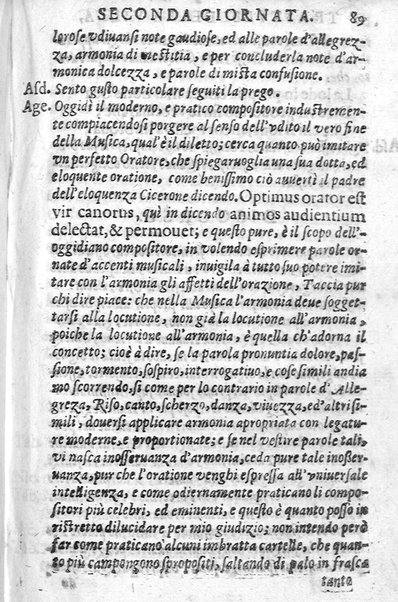 SECONDA GIORNATA. 89
lorose vdiuansi note gaudiose, ed alle parole d'allegrez-
za, armonia di mestitia, e per concluder la note d'ar-
monica dolcezza, e parole di mista confusione.
Asd. Sento gusto particolare seguiti la prego.
Age. Oggidì il moderno, e pratico compositore industremen-
te compiacendosi porgere al senso dell'vdito il vero fine
della Musica, qual'è il diletto; cerca quanto può imitare
vn perfetto Oratore, che spiegar voglia vna sua dotta, ed
eloquente oratione, come benissimo ciò auuertì il padre
dell'eloquenza Cicerone dicendo. Optimus orator est
vir canorus, què in dicendo animos audientium
delectat, & permouet; e questo pure, è il scopo dell'-
oggidiano compositore, in volendo esprimere parole or-
nate d'accenti musicali, inuigila à tutto suo potere imi-
tare con l'armonia gli affetti dell'oratione, Taccia pur
chi dire piace: che nella Musica l'armonia deue sogget-
tarsi alla locutione, non già la locutione all'armonia,
poiche la locutione all'armonia, è quella ch'adorna il
concetto; cioè à dire, se la parola pronuntia dolore, pas-
sione, tormento, sospiro, interrogatiuo, e cose simili andia
mo scorrendo, si come per lo contrario in parole d'Alle-
grezza, Riso, canto, scherzo, danza, viuezza, ed'altri si-
mili, douersi applicare armonia apropriata con legatu-
re moderne, e proportionate; e se nel vestire parole tali,
vi nasca inosseruanza d'armonia, ceda pure tale inosser-
uanza, pur che l'oratione venghi espressa all'vniuersale
intelligenza, e come odiernamente praticano li compo-
sitori più celebri, ed eminenti, e questo è quanto posso in
ristretto dilucidare per mio giudizio; non intendo però
far come praticano alcuni imbratta cartelle, che quan-
to più campongono spropositi, saltando di palo in frasca
tanto